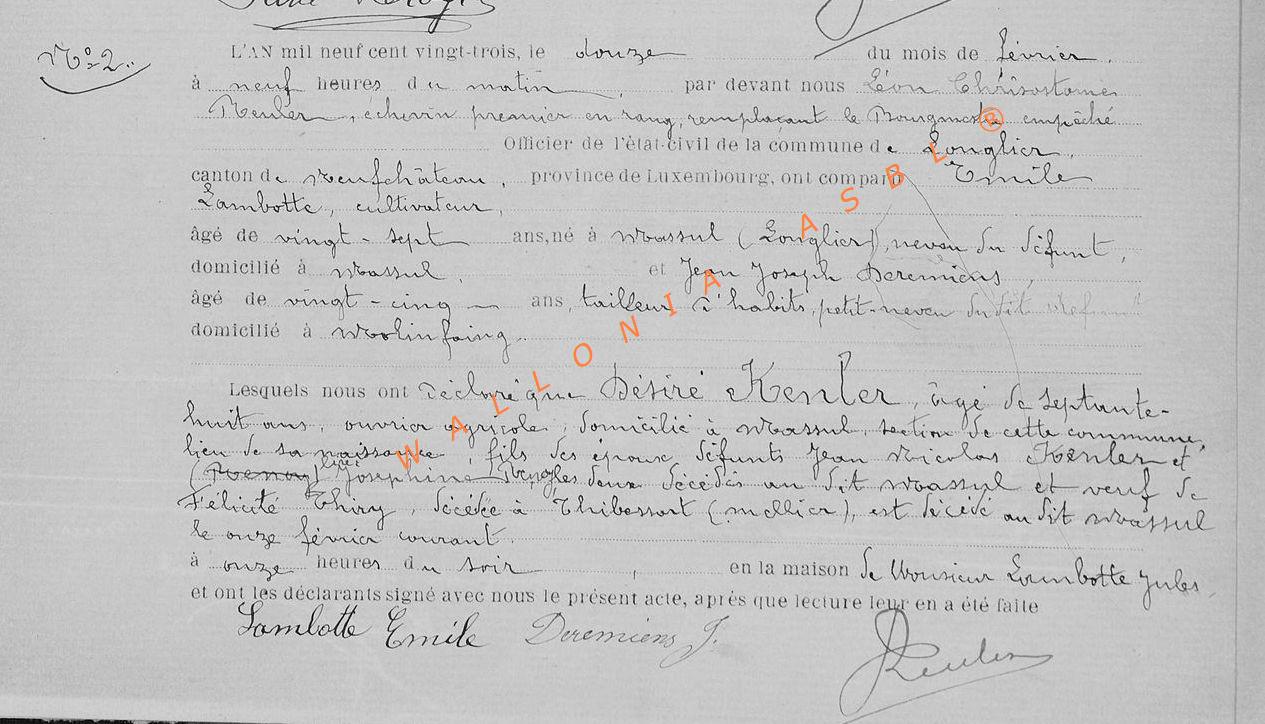 N° 2.
L'AN mil neuf cent vingt-trois, le douze du mois de février,
à neuf heures du matin, par devant nous Léon Chrisostome
Kenler, échevin premier en rang, remplaçant le Bourgmestre empêché
Officier de l'état-civil de la commune de Longlier,
canton de Neufchâteau, province de Luxembourg, ont comparu Emile
Lambotte, cultivateur,
âgé de vingt-sept ans, né à Massul (Longlier), neveu du défunt,
domicilié à Massul, et Jean Joseph Deremiens,
âgé de vingt-cinq ans, tailleur d'habits, petit-neveu du dit défunt
domicilié à Molinfaing.
Lesquels nous ont déclaré que Désiré Kenler, âgé de septante-
huit ans, ouvrier agricole, domicilié à Massul, section de cette commune,
lieu de sa naissance, fils des époux défunts Jean Nicolas Kenler et
Joséphine deux décédés au dit Massul et veuf de
Félicité Thiry, décédée à Thibessart (Mellier), est décédé au dit Massul
le onze février courant.
à onze heures du soir, en la maison de Monsieur Lambotte Jules,
et ont les déclarants signé avec nous le présent acte, après que lecture leur en a été faite
Lambotte Emile Deremiens J. Kenler
WALLONIA ASBL ®